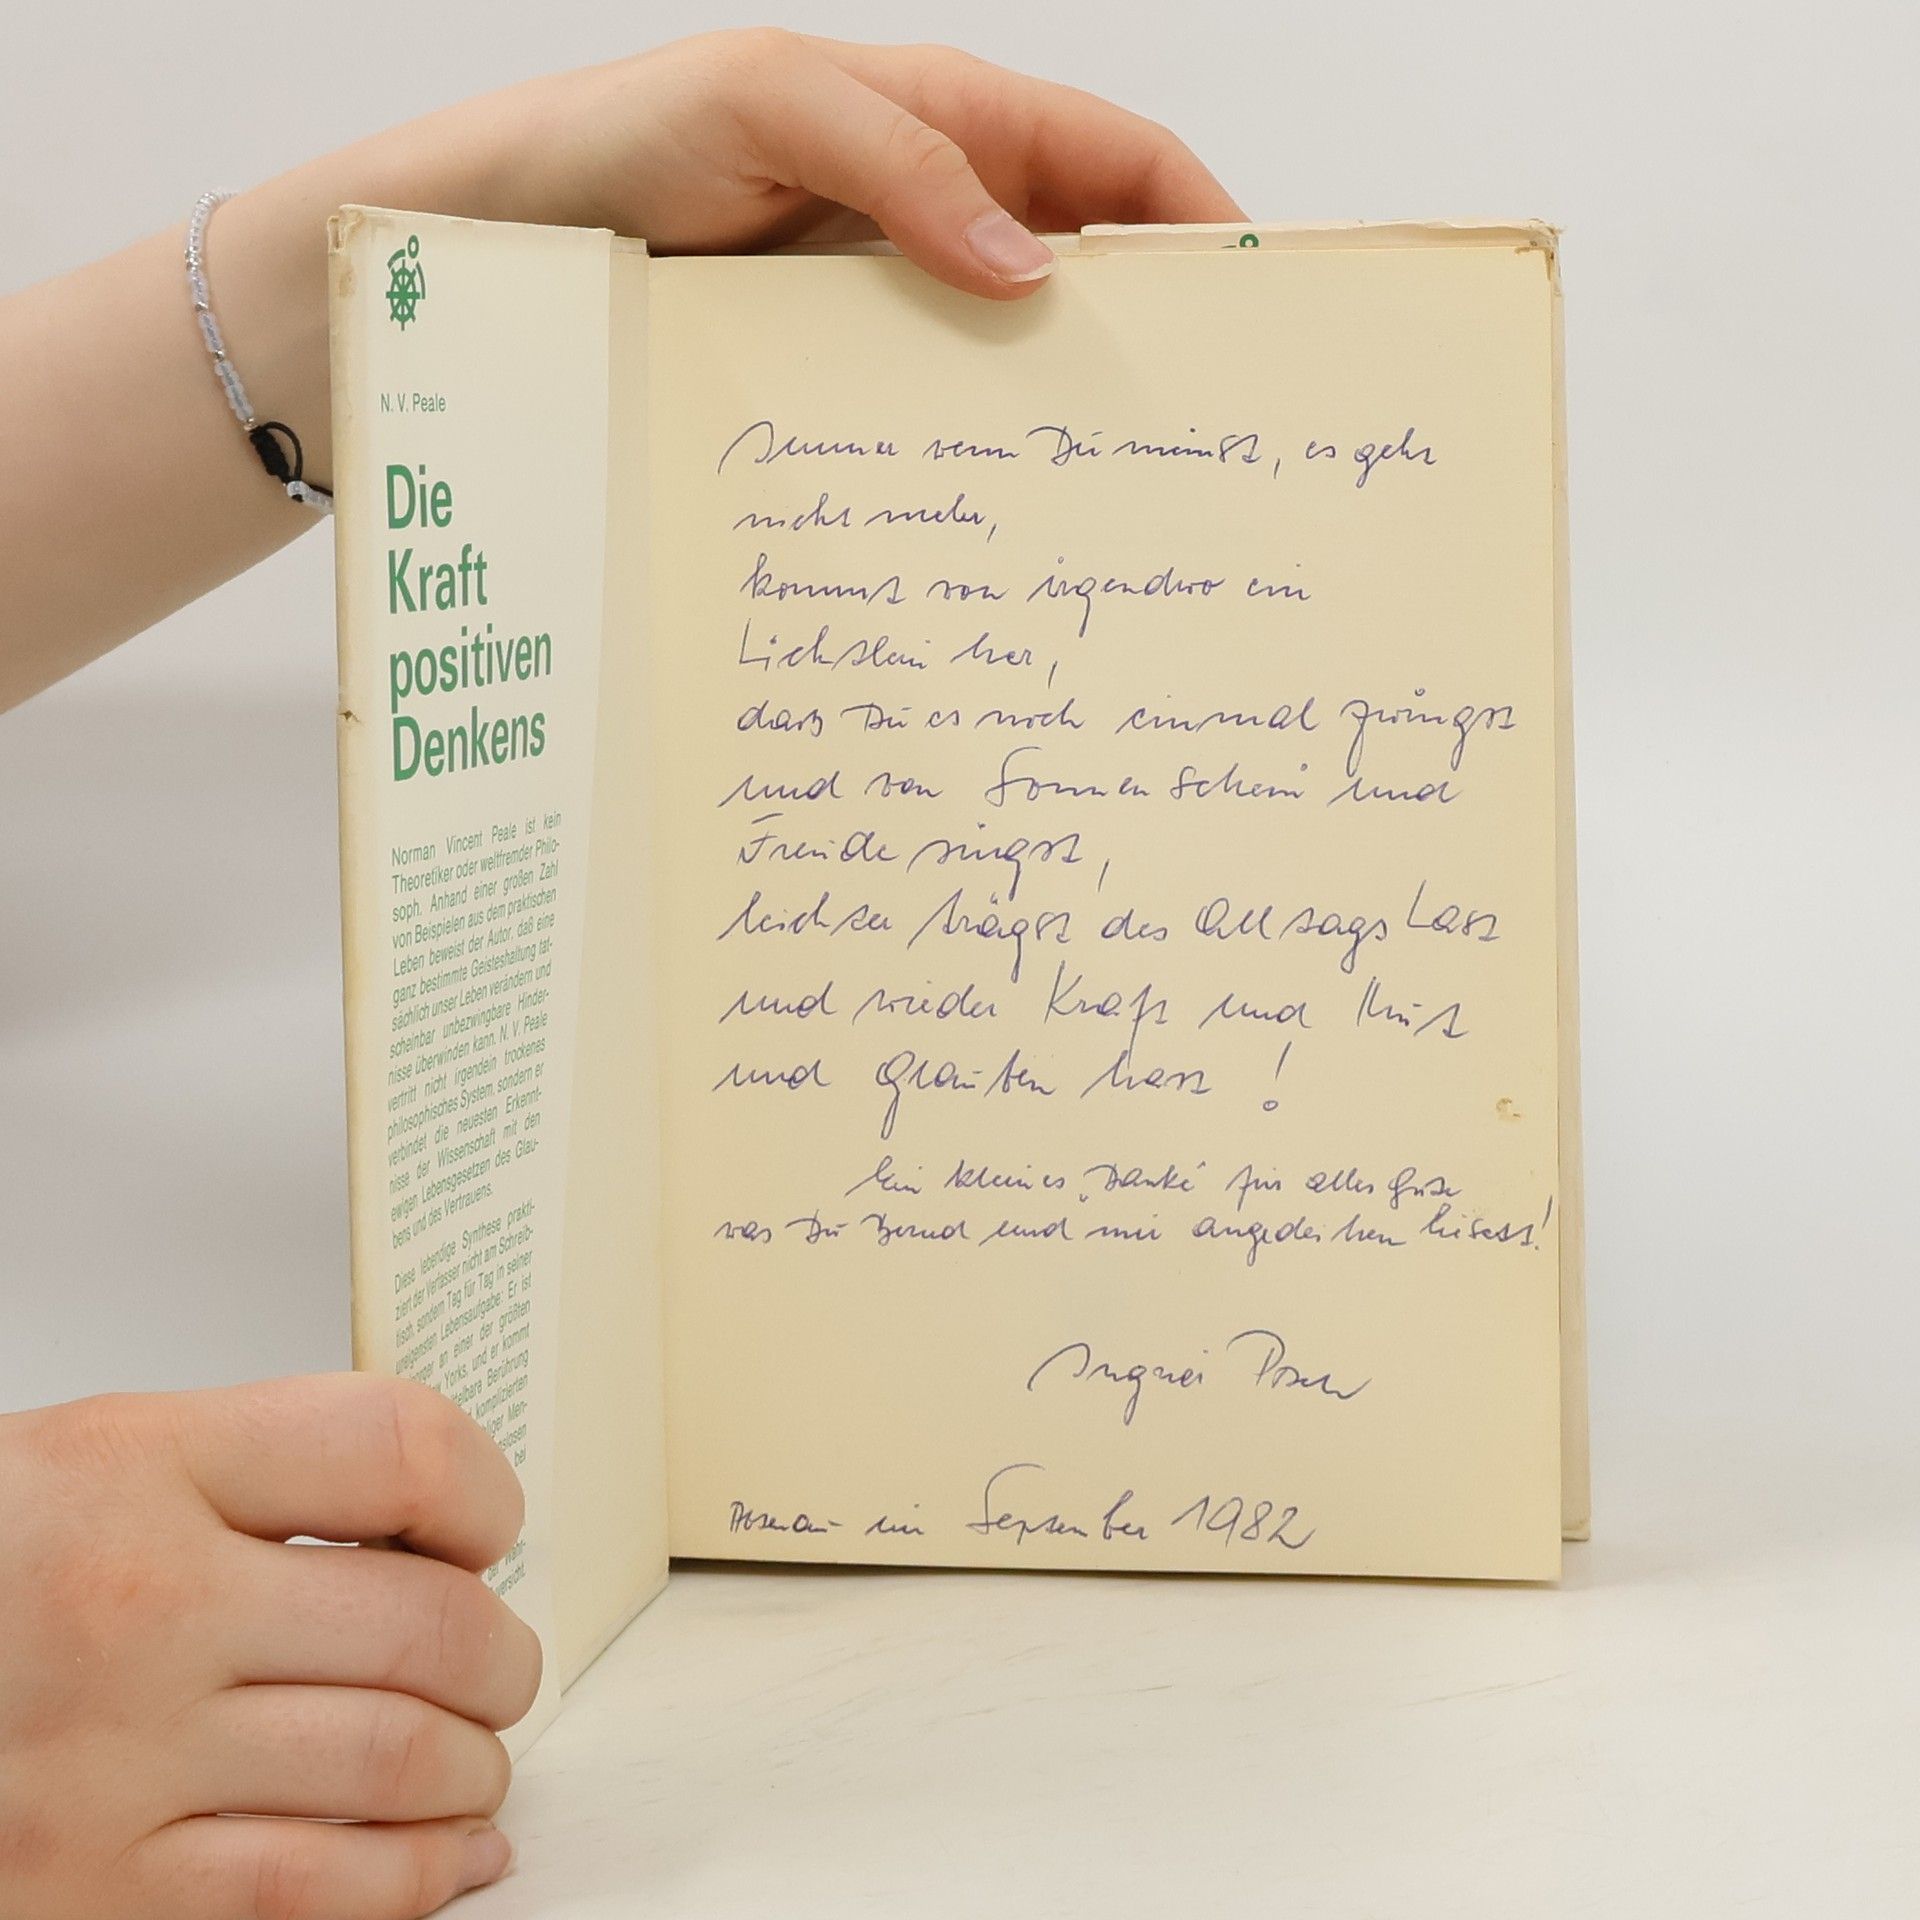 N. V. Peale
Die
Kraft
positiven
Denkens
Norman Vincent Peale ist kein
Theoretiker oder weltfremder Philo-
soph. Anhand einer großen Zahl
von Beispielen aus dem praktischen
Leben beweist der Autor, daß eine
ganz bestimmte Geisteshaltung tat-
sächlich unser Leben verändern und
scheinbar unbezwingbare Hinder-
nisse überwinden kann. N. V. Peale
vertritt nicht irgendein trockenes
philosophisches System, sondern er
verbindet die neuesten Erkennt-
nisse der Wissenschaft mit den
ewigen Lebensgesetzen des Glau-
bens und des Vertrauens.
Diese lebendige Synthese prakti-
ziert der Verfasser nicht am Schreib-
tisch, sondern Tag für Tag in seiner
ureigensten Lebensaufgabe: Er ist
an einer der größten
Yorks, und er kommt
Berührung
komplizierten
Men-
bei
der Wahr-
Immer wenn Du meinst, es geht
nicht mehr,
kommt von irgendwo ein
Lichtlein her,
daß Du es noch einmal zwingst
und von Sonnenschein und
Freude singst,
leichter trägst des Alltags Last
und wieder Kraft und Mut
und Glauben hast !
Ein kleines „Danke“ für alles Gute
was Du Bernd und mir angedeihen liesest!
im September 1982